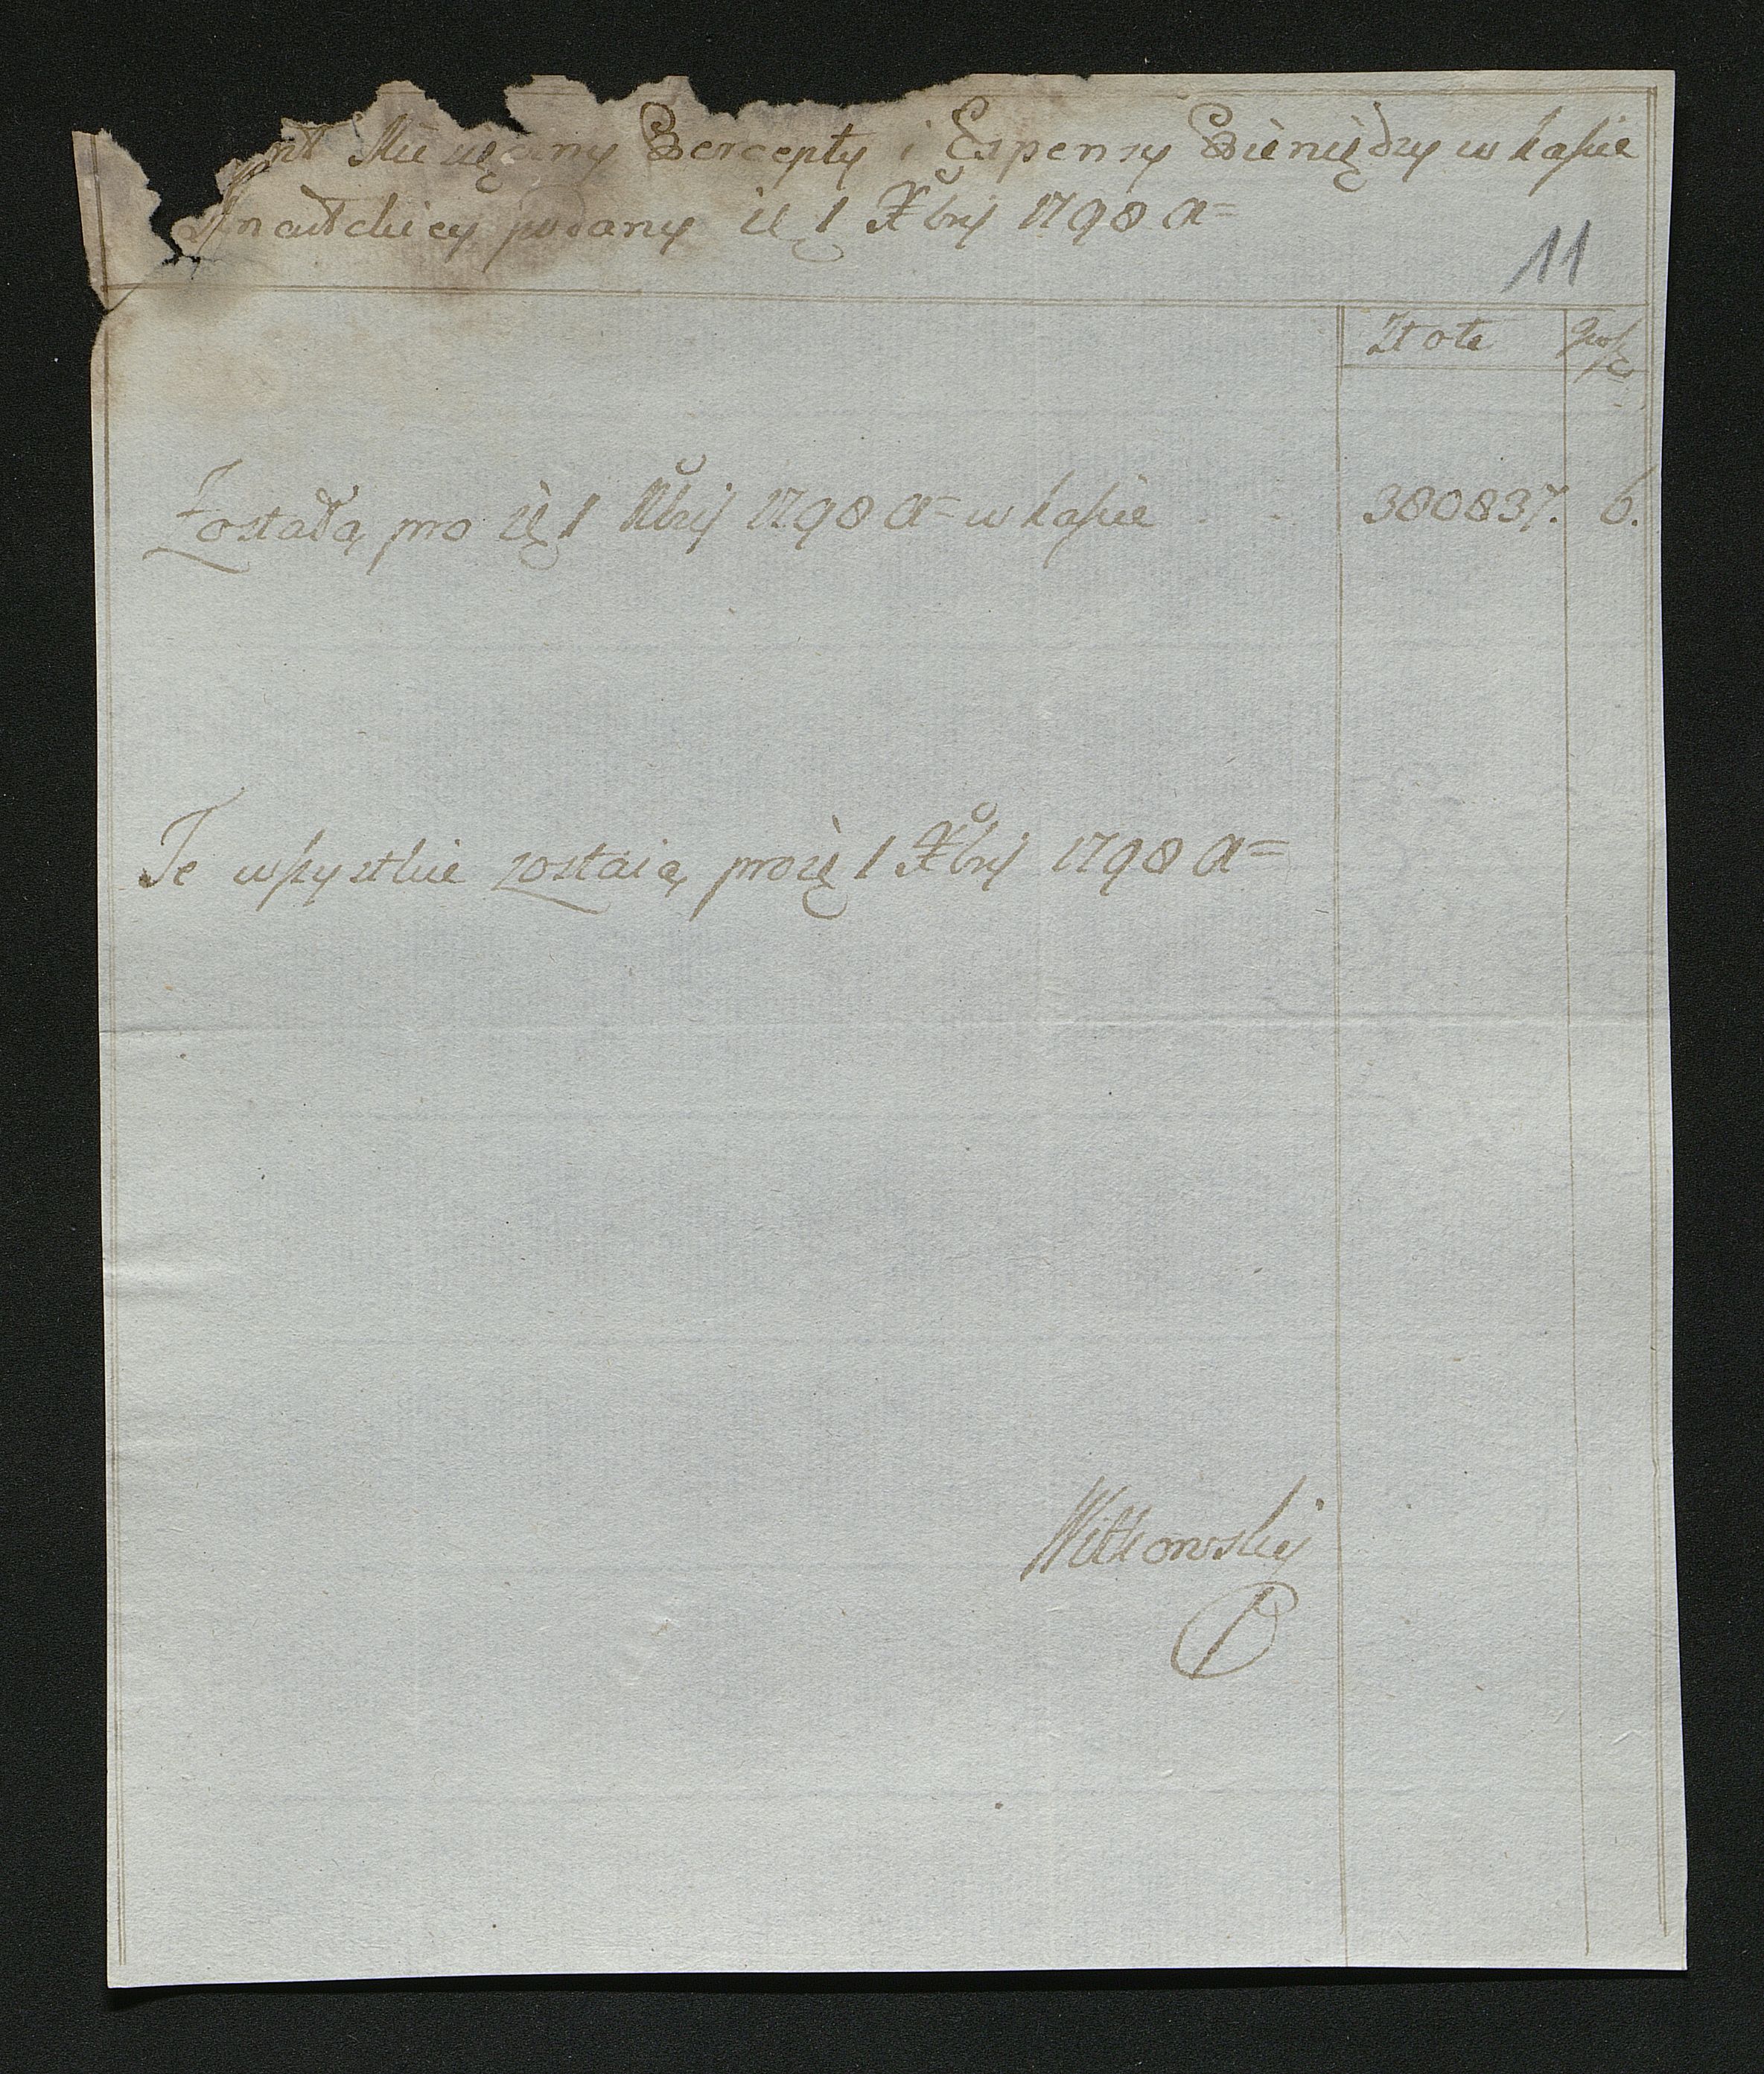 Miesięczny Percepty i Expensy Pieniędzy w kassie
podany ię 1 Xbrij 1798 a=
11
Złote Grosz
Zostaią pro ię 1 Nbrij 1798 a= w kassie 380837. 6.
Te wszystkie zostaią pro ię 1 Xbrij 1798 a=
Witkowskij